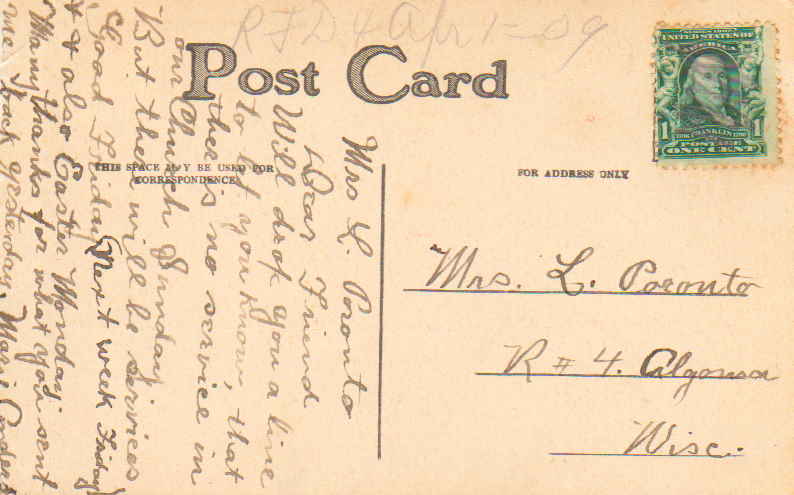 RFD 4 Apr 1-09
Post Card
SERIES 1902
UNITED STATES OF
AMERICA
1 FRANKLIN 1
POSTAGE
ONE CENT
THIS SPACE MAY BE USED FOR
CORRESPONDENCE
FOR ADDRESS ONLY
Mrs. L. Poronto
R # 4. Algoma
Wisc.
Mrs L. Poronto
Dear Friend
Will drop you a line
to let you know, that
there is no service in
our Church Sunday
But there will be services
Good Friday (Next week Friday)
+ also Easter Monday.
Many thanks for what you sent
me back yesterday. Marie